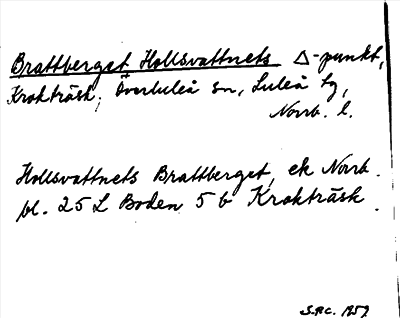 Brattberget Hollsvattnets △-punkt,
Krokträsk, Överluleå sn, Luleå tg,
Norrb. l.
Hollsvattnets Brattberget, ek Norrb.
bl. 25 L Boden 5 b Krokträsk.
1959